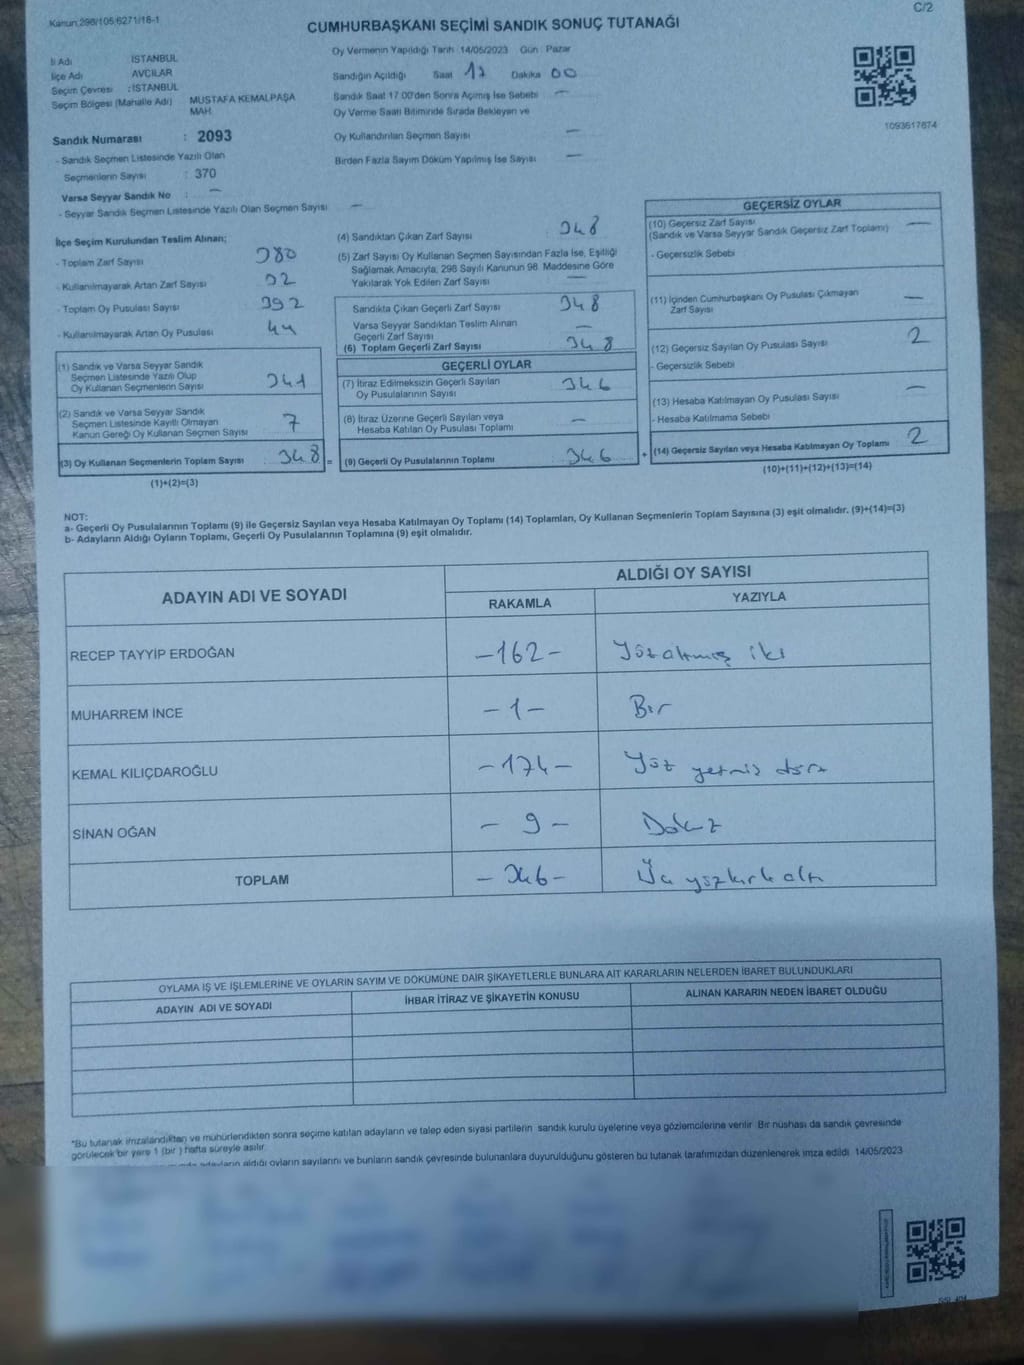 Kanun:298/105,6271/18-1
C/2
CUMHURBAŞKANI SEÇİMİ SANDIK SONUÇ TUTANAĞI
İl Adı İSTANBUL
İlçe Adı AVCILAR
Seçim Çevresi : İSTANBUL
Seçim Bölgesi (Mahalle Adı) MUSTAFA KEMALPAŞA
MAH.
Oy Vermenin Yapıldığı Tarih :14/05/2023 Gün : Pazar
Sandığın Açıldığı Saat 17 Dakika 00
Sandık Saat 17:00'den Sonra Açılmış İse Sebebi —
Oy Verme Saati Bitiminde Sırada Bekleyen ve
Oy Kullandırılan Seçmen Sayısı —
Birden Fazla Sayım Döküm Yapılmış İse Sayısı —
1093617674
Sandık Numarası : 2093
- Sandık Seçmen Listesinde Yazılı Olan
Seçmenlerin Sayısı : 370
Varsa Seyyar Sandık No : —
- Seyyar Sandık Seçmen Listesinde Yazılı Olan Seçmen Sayısı —
İlçe Seçim Kurulundan Teslim Alınan;
- Toplam Zarf Sayısı 380
- Kullanılmayarak Artan Zarf Sayısı 32
- Toplam Oy Pusulası Sayısı 392
- Kullanılmayarak Artan Oy Pusulası 44
(1) Sandık ve Varsa Seyyar Sandık
Seçmen Listesinde Yazılı Olup
Oy Kullanan Seçmenlerin Sayısı 341
(2) Sandık ve Varsa Seyyar Sandık
Seçmen Listesinde Kayıtlı Olmayan
Kanun Gereği Oy Kullanan Seçmen Sayısı 7
(3) Oy Kullanan Seçmenlerin Toplam Sayısı 348 =
(1)+(2)=(3)
(4) Sandıktan Çıkan Zarf Sayısı : 348
(5) Zarf Sayısı Oy Kullanan Seçmen Sayısından Fazla İse, Eşitliği
Sağlamak Amacıyla, 298 Sayılı Kanunun 98. Maddesine Göre
Yakılarak Yok Edilen Zarf Sayısı —
Sandıkta Çıkan Geçerli Zarf Sayısı 348
Varsa Seyyar Sandıktan Teslim Alınan
Geçerli Zarf Sayısı —
(6) Toplam Geçerli Zarf Sayısı 348
GEÇERLİ OYLAR
(7) İtiraz Edilmeksizin Geçerli Sayılan
Oy Pusulalarının Sayısı 346
(8) İtiraz Üzerine Geçerli Sayılan veya
Hesaba Katılan Oy Pusulası Toplamı —
(9) Geçerli Oy Pusulalarının Toplamı 346 +
GEÇERSİZ OYLAR
(10) Geçersiz Zarf Sayısı
(Sandık ve Varsa Seyyar Sandık Geçersiz Zarf Toplamı) —
- Geçersizlik Sebebi
(11) İçinden Cumhurbaşkanı Oy Pusulası Çıkmayan
Zarf Sayısı —
(12) Geçersiz Sayılan Oy Pusulası Sayısı 2
- Geçersizlik Sebebi
(13) Hesaba Katılmayan Oy Pusulası Sayısı —
- Hesaba Katılmama Sebebi
(14) Geçersiz Sayılan veya Hesaba Katılmayan Oy Toplamı 2
(10)+(11)+(12)+(13)=(14)
NOT:
a- Geçerli Oy Pusulalarının Toplamı (9) ile Geçersiz Sayılan veya Hesaba Katılmayan Oy Toplamı (14) Toplamları, Oy Kullanan Seçmenlerin Toplam Sayısına (3) eşit olmalıdır. (9)+(14)=(3)
b- Adayların Aldığı Oyların Toplamı, Geçerli Oy Pusulalarının Toplamına (9) eşit olmalıdır.
ADAYIN ADI VE SOYADI ALDIĞI OY SAYISI
RAKAMLA YAZIYLA
RECEP TAYYİP ERDOĞAN -162- Yüzaltmış iki
MUHARREM İNCE -1- Bir
KEMAL KILIÇDAROĞLU -174- Yüz yetmiş dört
SİNAN OĞAN -9- Dokuz
TOPLAM -346- Üç yüzkırk altı
OYLAMA İŞ VE İŞLEMLERİNE VE OYLARIN SAYIM VE DÖKÜMÜNE DAİR ŞİKAYETLERLE BUNLARA AİT KARARLARIN NELERDEN İBARET BULUNDUKLARI
ADAYIN ADI VE SOYADI İHBAR İTİRAZ VE ŞİKAYETİN KONUSU ALINAN KARARIN NEDEN İBARET OLDUĞU
*Bu tutanak imzalandıktan ve mühürlendikten sonra seçime katılan adayların ve talep eden siyasi partilerin sandık kurulu üyelerine veya gözlemcilerine verilir. Bir nüshası da sandık çevresinde
görülecek bir yere 1 (bir ) hafta süreyle asılır.
adayların aldığı oyların sayılarını ve bunların sandık çevresinde bulunanlara duyurulduğunu gösteren bu tutanak tarafımızdan düzenlenerek imza edildi. 14/05/2023